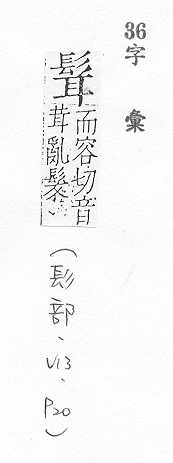 36字彙
髶
而容切音
茸亂髮
(髟部、V13、P20)